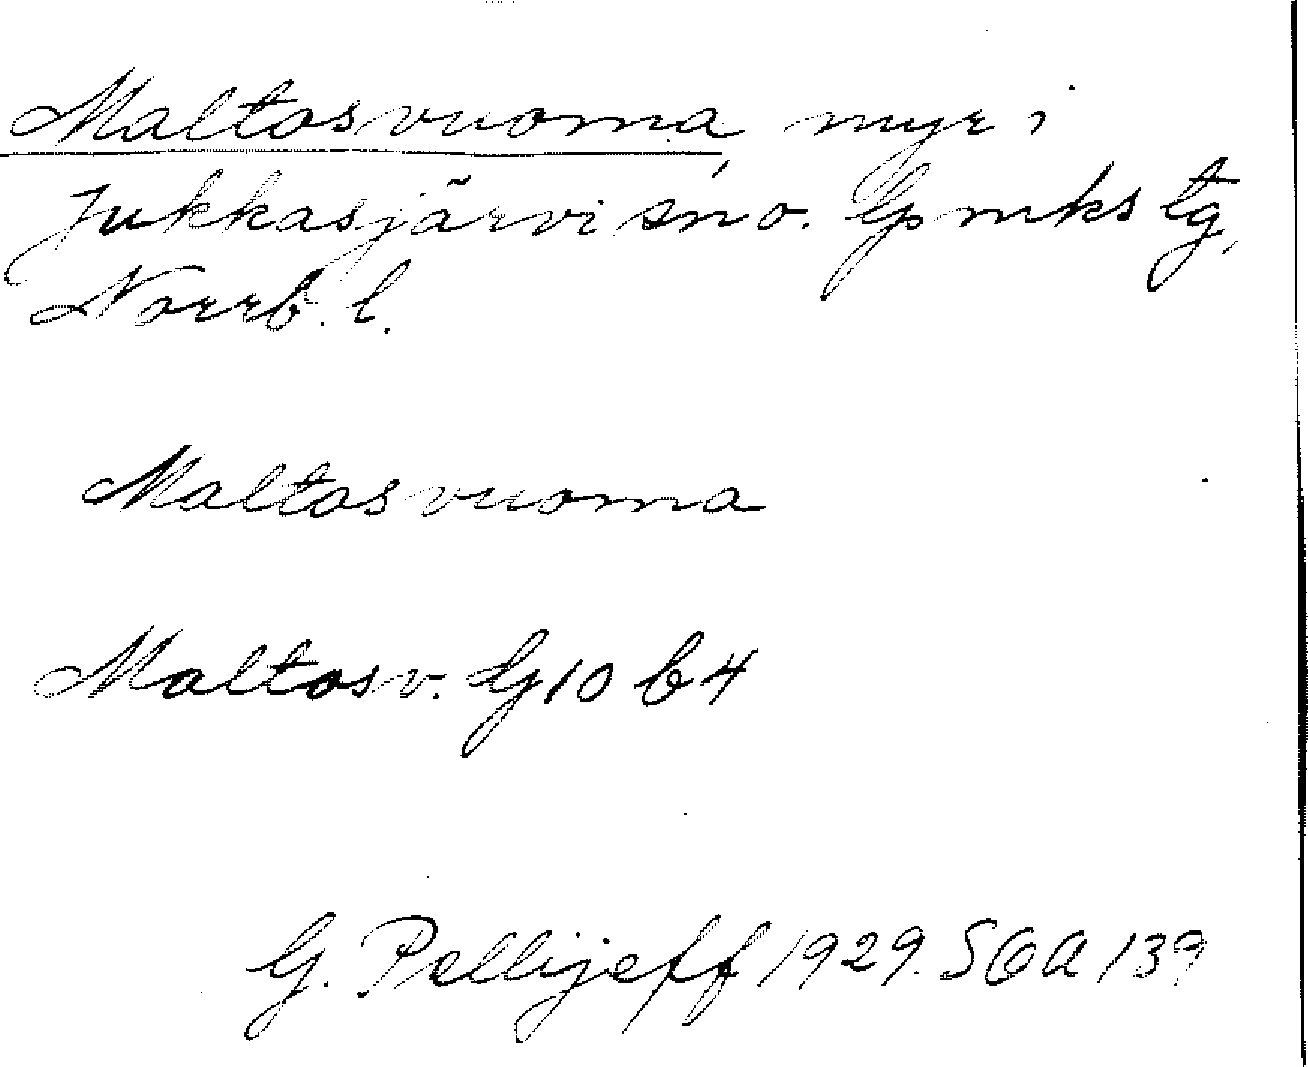 Maltosvuoma, myr i
Jukkasjärvi sn o. Gpmks tg,
Norrb. l.
Maltosvuoma
Maltosv. G10 b4
G. Pellijeff 1929. SOA 139